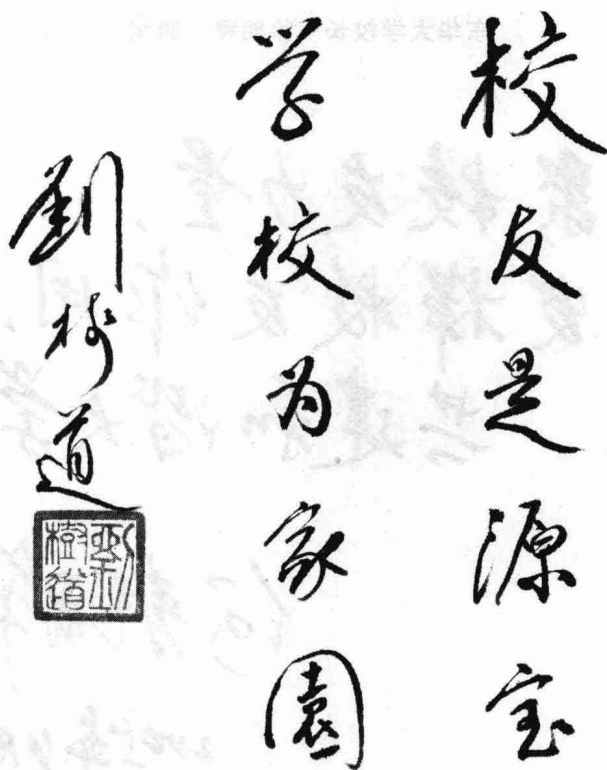 校友是源宝
学校为家園
劉树道
劉樹道